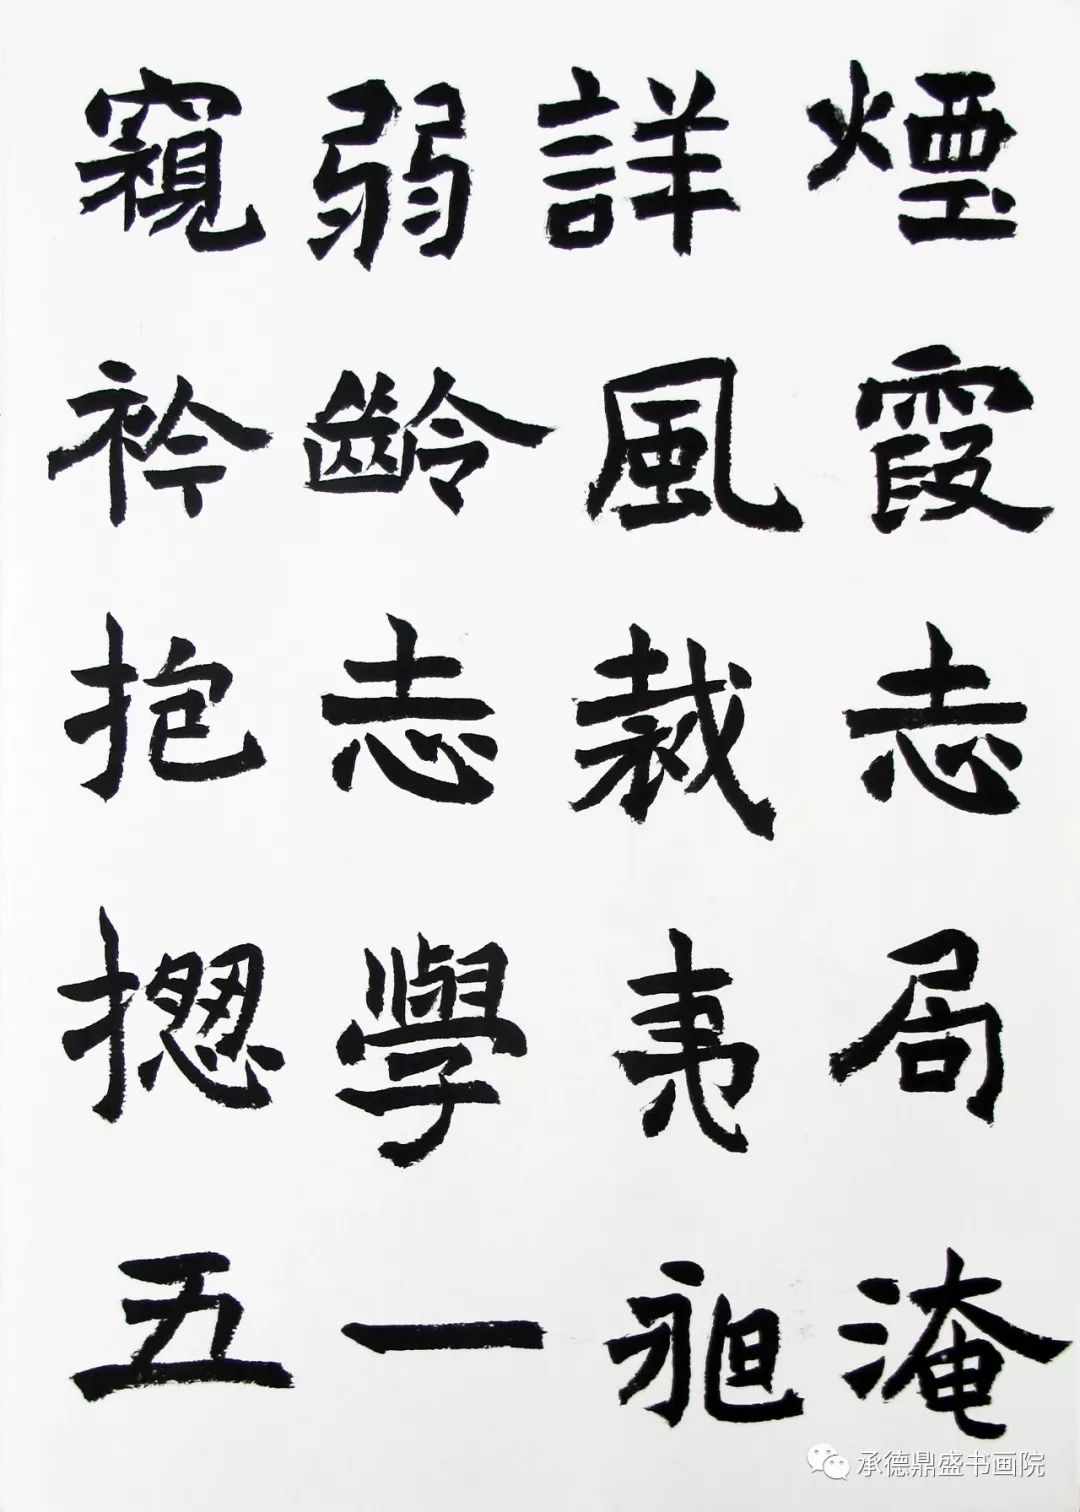 煙霞志局淹
詳風裁夷昶
弱齡志學一
窺衿抱揔五
承德鼎盛书画院